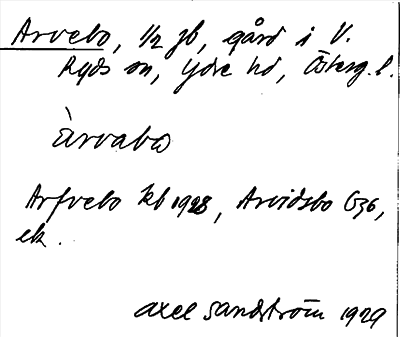 Arvebo, 1/2 jb, gård i V.
Ryds sn, Ydre hd, Österg. l.
Àrvabo
Arfvebo kb 1928, Arvidsbo G36,
ek.
Axel Sandström 1929